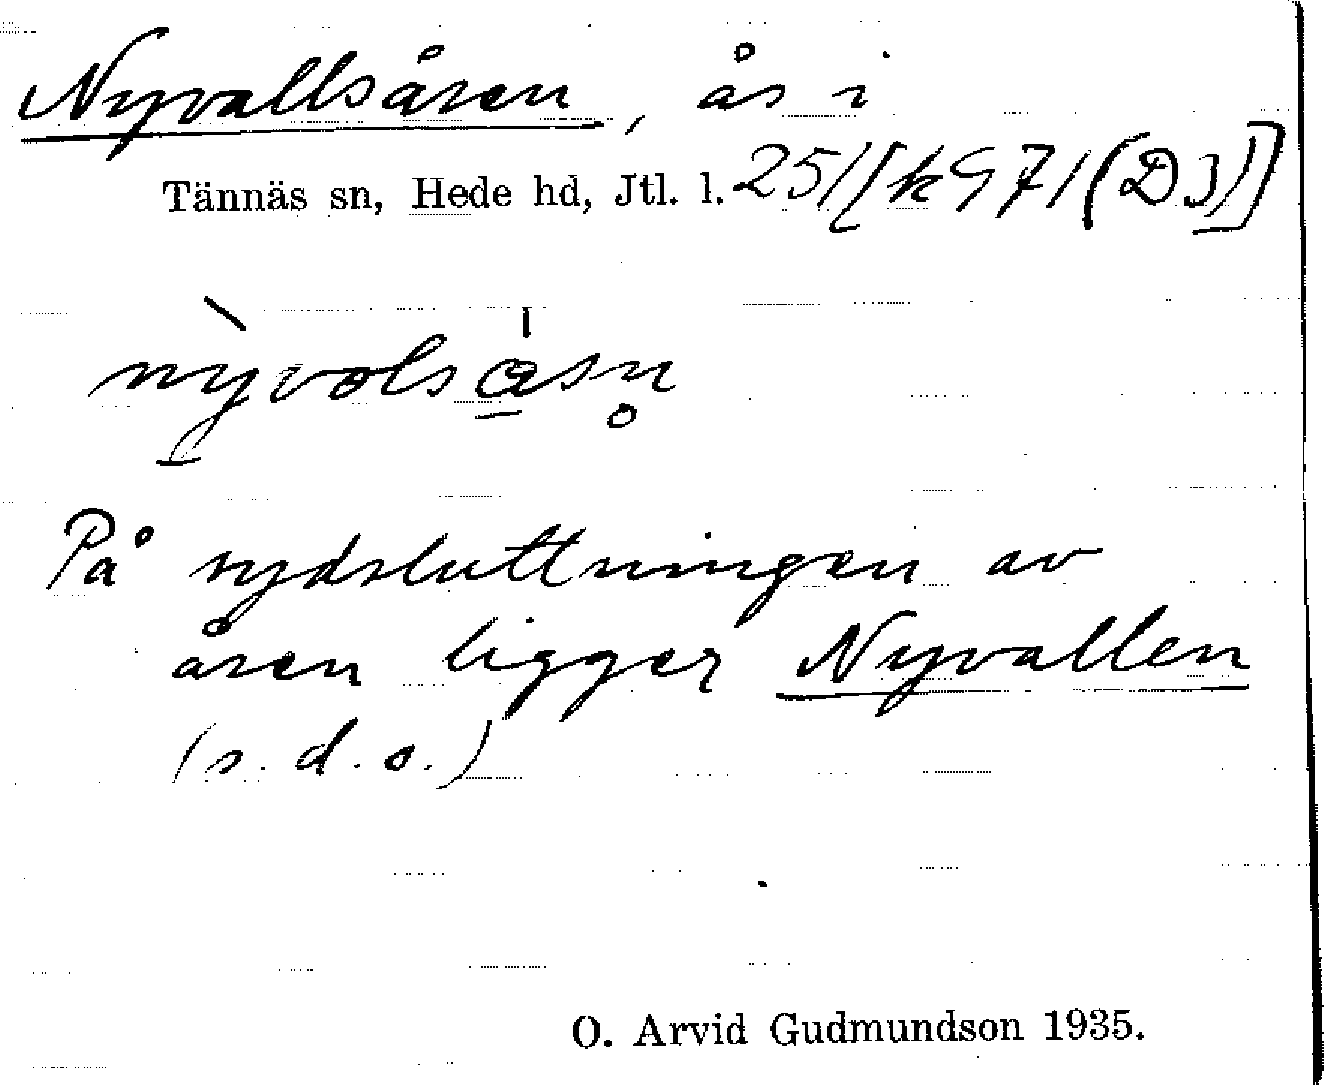 Nyvallsåsen, ås i
Tännäs sn, Hede hd, Jtl. l. 25/[k971(D3)]
nỳvolsåsn̥
På sydsluttningen av
åsen ligger Nyvallen
(s. d. o.)
O. Arvid Gudmundson 1935.